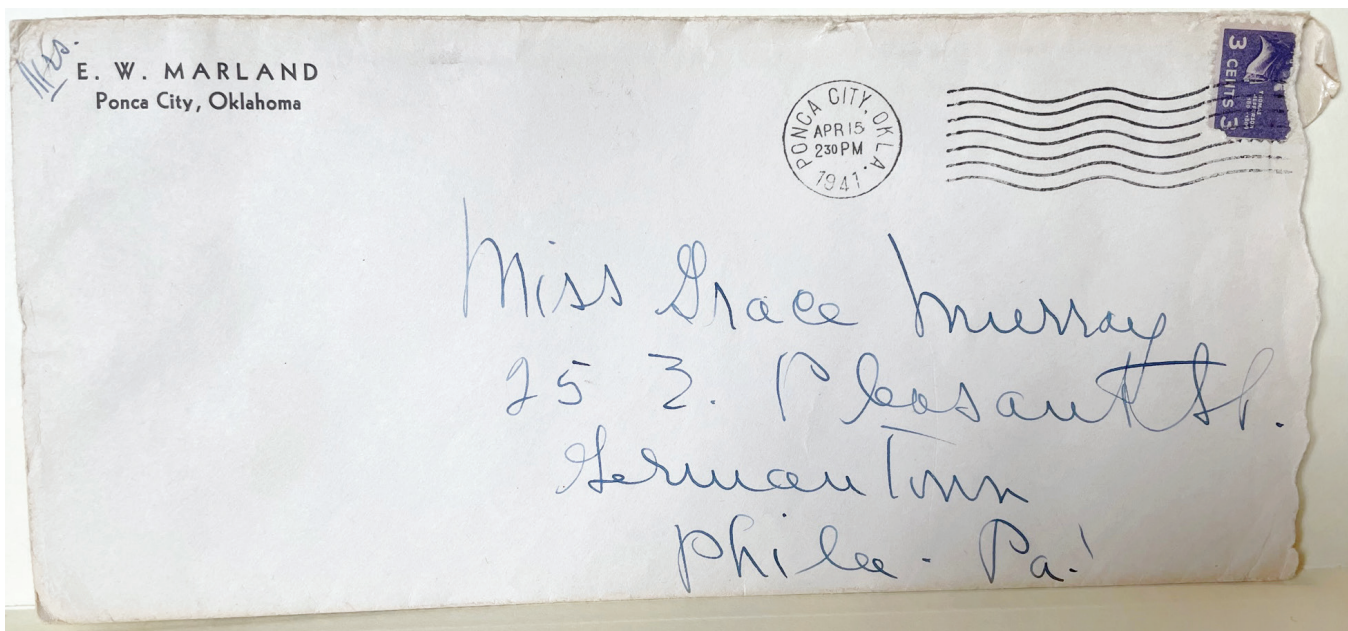 Mrs.
E. W. MARLAND
Ponca City, Oklahoma
PONCA CITY, OKLA.
APR 15
230 PM
1941
3 CENTS 3
Miss Grace Murray
25 E. Pleasant St.
Germantown
Phila - Pa.